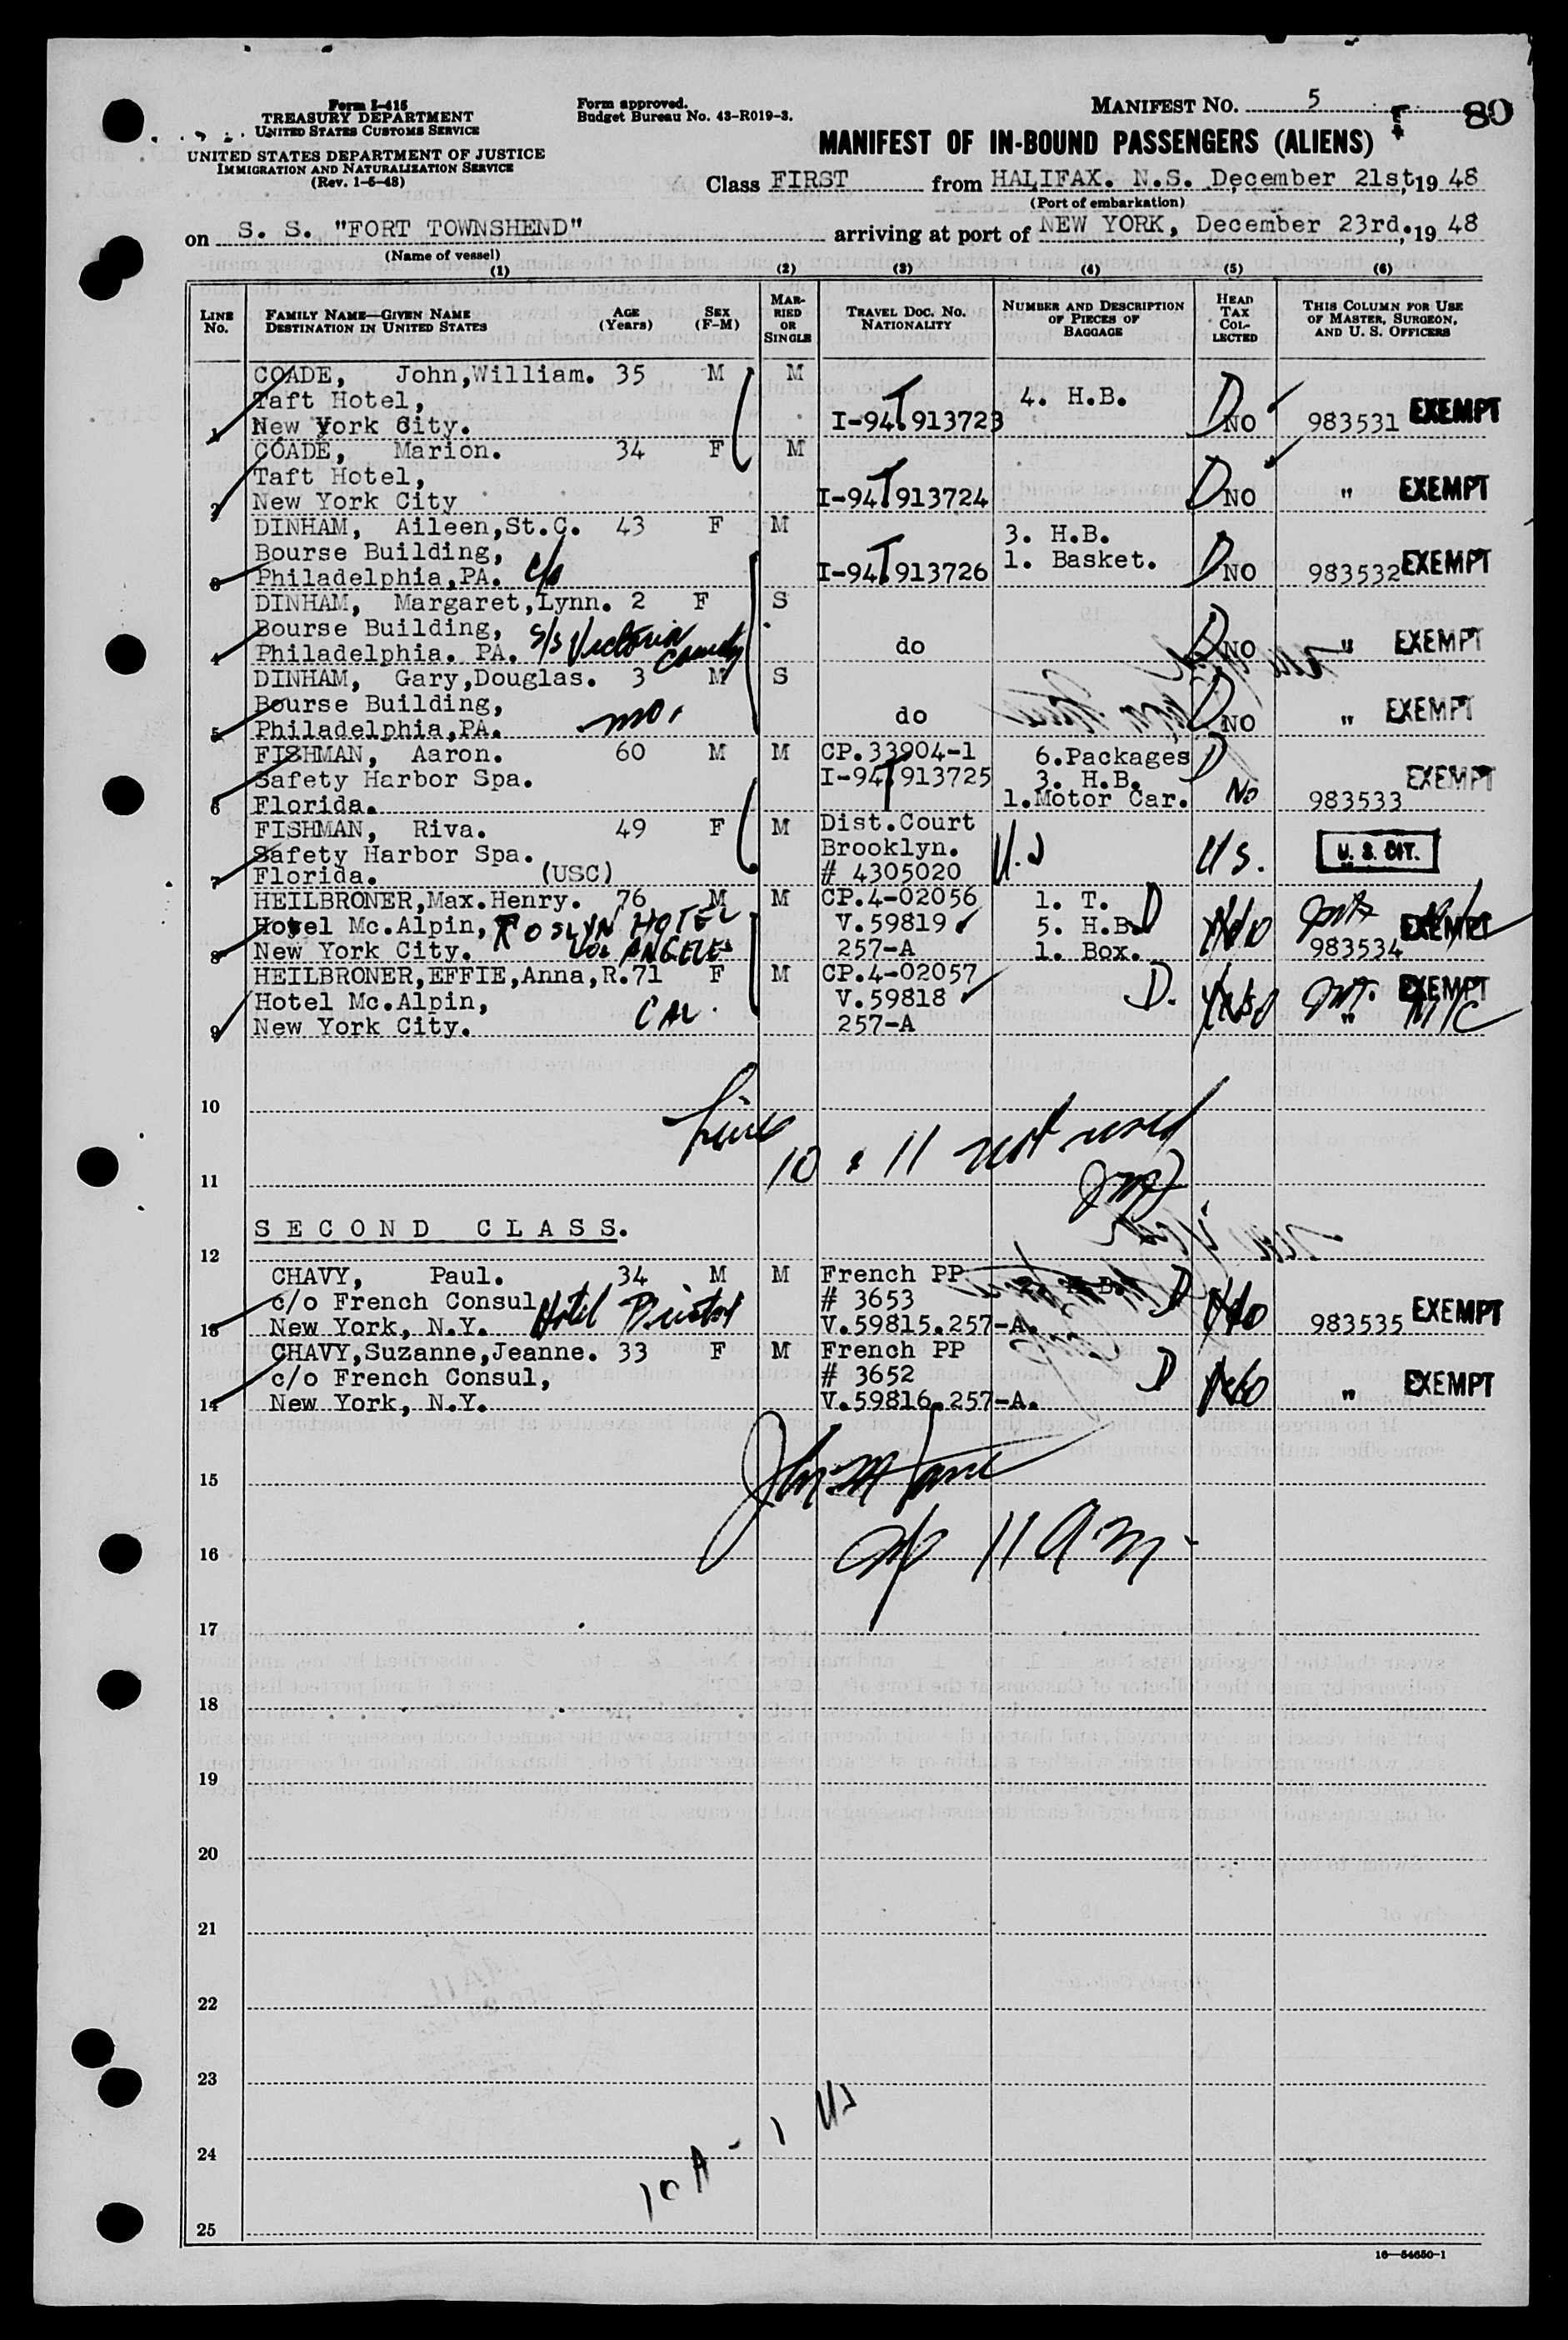 Form I-415
TREASURY DEPARTMENT
UNITED STATES CUSTOMS SERVICE
UNITED STATES DEPARTMENT OF JUSTICE
IMMIGRATION AND NATURALIZATION SERVICE
(Rev. 1-5-48)
Form approved.
Budget Bureau No. 43-R019-3.
MANIFEST NO. 5
80
MANIFEST OF IN-BOUND PASSENGERS (ALIENS)
Class FIRST from HALIFAX. N.S. December 21st, 19 48
(Port of embarkation)
on S. S. "FORT TOWNSHEND" arriving at port of NEW YORK, December 23rd., 19 48
(Name of vessel)
(1) (2) (3) (4) (5) (6)
LINE No. FAMILY NAME—GIVEN NAME DESTINATION IN UNITED STATES AGE (Years) SEX (F-M) MARRIED OR SINGLE TRAVEL DOC. NO. NATIONALITY NUMBER AND DESCRIPTION OF PIECES OF BAGGAGE HEAD TAX COLLECTED THIS COLUMN FOR USE OF MASTER, SURGEON, AND U. S. OFFICERS
COADE, John,William. 35 M M
Taft Hotel, 4. H.B.
1 New York City. I-94 T 913723 D NO 983531 EXEMPT
COADE, Marion. 34 F M
Taft Hotel,
2 New York City I-94 T 913724 D NO " EXEMPT
DINHAM, Aileen,St.C. 43 F M 3. H.B.
Bourse Building, 1. Basket.
3 Philadelphia,PA. c/o I-94 T 913726 D NO 983532 EXEMPT
DINHAM, Margaret,Lynn. 2 F S
Bourse Building, S/S Victoria County
4 Philadelphia. PA. do D NO " EXEMPT
DINHAM, Gary,Douglas. 3 M S
Bourse Building, mo.
5 Philadelphia,PA. do D NO " EXEMPT
FISHMAN, Aaron. 60 M M CP.33904-1 6.Packages D
Safety Harbor Spa. I-94 T 913725 3. H.B. EXEMPT
6 Florida. 1.Motor Car. No 983533
FISHMAN, Riva. 49 F M Dist.Court
Safety Harbor Spa. Brooklyn. U.S. U.S. CIT.
7 Florida. (USC) # 4305020
HEILBRONER,Max.Henry. 76 M M CP.4-02056 1. T. D
Hotel Mc.Alpin, ROSLYN HOTEL V.59819 5. H.B. No EXEMPT
8 New York City. LOS ANGELES 257-A 1. Box. 983534
HEILBRONER,EFFIE,Anna,R.71 F M CP.4-02057
Hotel Mc.Alpin, CAL. V.59818 D. EXEMPT
9 New York City. 257-A "
10
Lines 10 & 11 not used
11
SECOND CLASS.
12
CHAVY, Paul. 34 M M French PP 2. H.B. D
c/o French Consul Hotel Bristol # 3653 No EXEMPT
13 New York, N.Y. V.59815.257-A. 983535
CHAVY,Suzanne,Jeanne. 33 F M French PP
c/o French Consul, # 3652 D No EXEMPT
14 New York, N.Y. V.59816.257-A. "
15
16 11 am
17
18
19
20
21
22
23
24 10 A - 1 US
25
16—54650-1